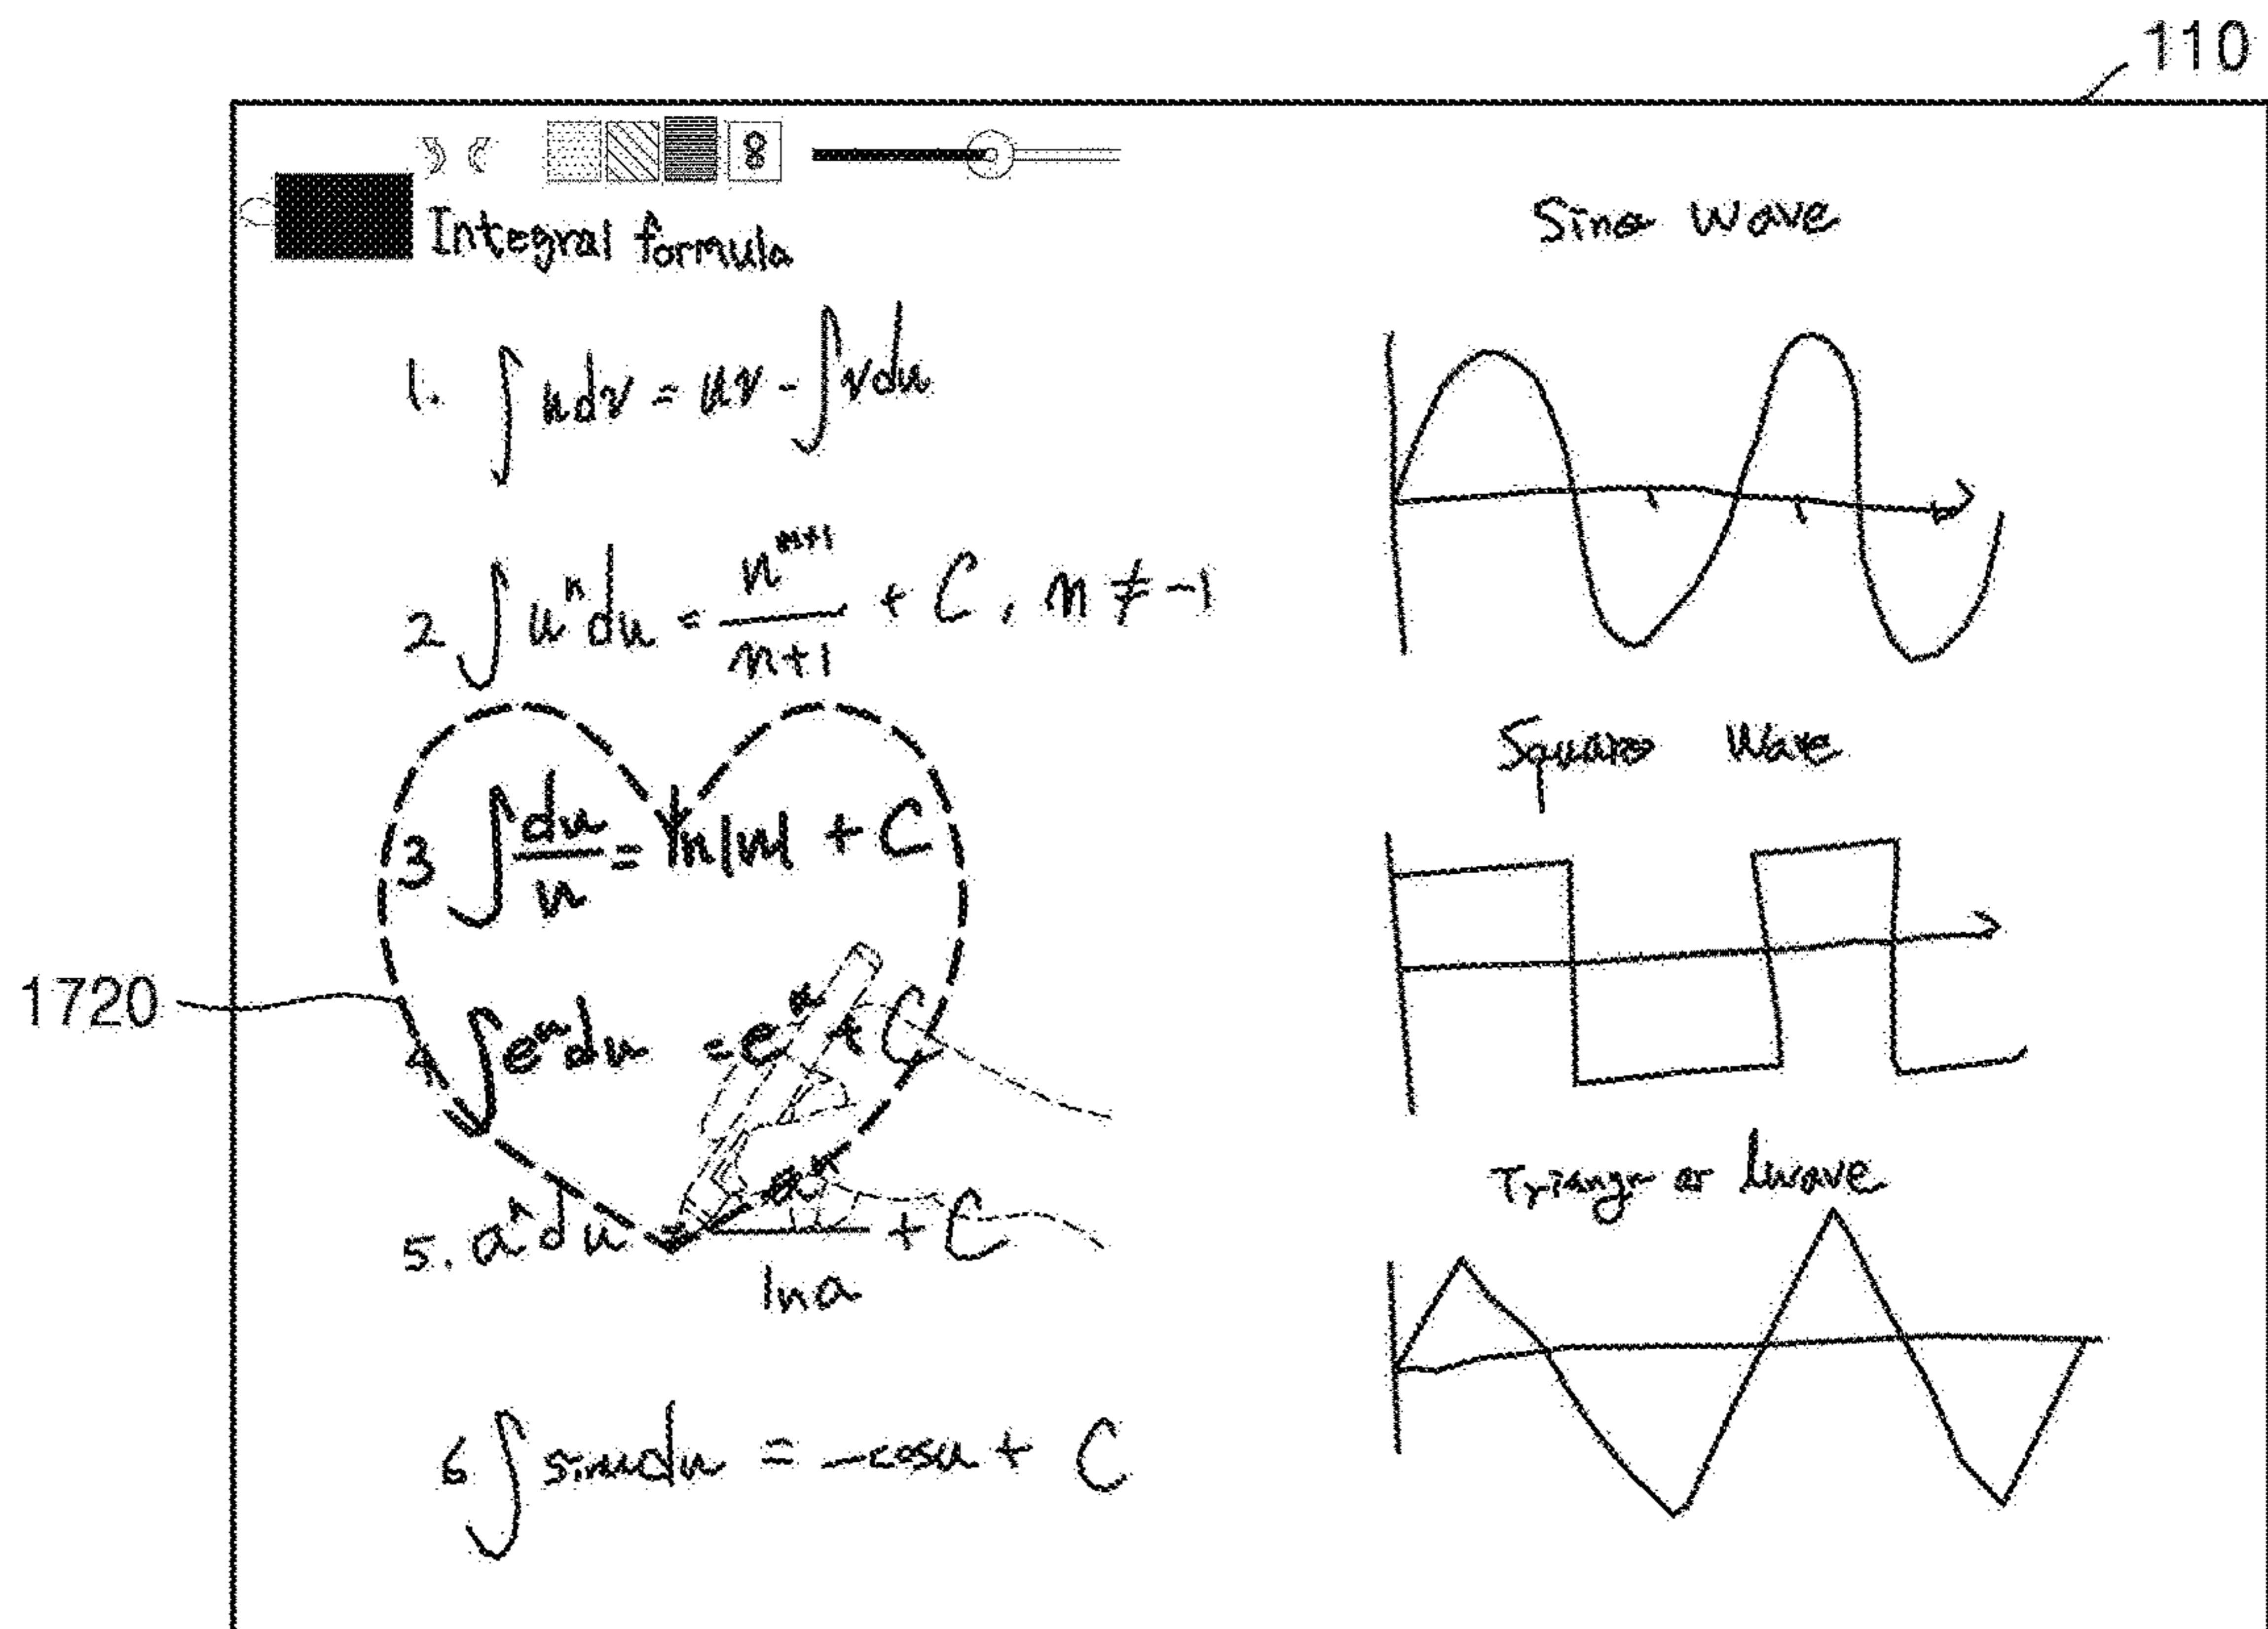 110
Integral formula
1. ∫ u dv = uv - ∫ v du
2 ∫ uⁿ du = nⁿ⁺¹/n+1 + C, n ≠ -1
3 ∫ du/u = ln|u| + C
1720
4 ∫ eᵘ du = eᵘ + C
5. aⁿ du = aⁿ/ln a + C
6 ∫ sin u du = -cos u + C
Sine wave
Square wave
wave